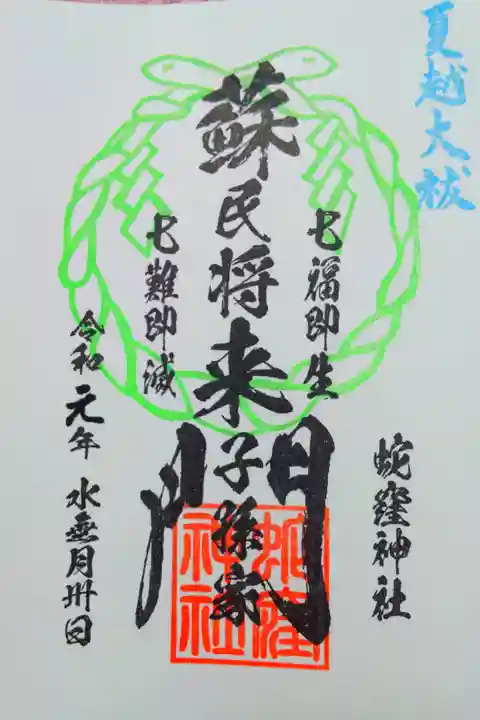 夏越大祓
七福即生
蘇民将来子孫家門
七難即滅
令和元年 水無月卅日
蛇窪神社
蛇窪
神社